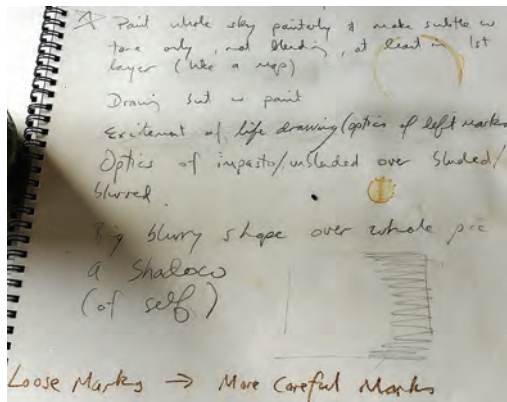 Paint whole sky painterly & make subtle w
tone only, not blending, at least in 1st
layer (like a map)
Drawing out w paint
Excitement of life drawing/optics of left marks
Optics of impasto/unblended over blended/
blurred
Big blurry shape over whole pic
a shadow
(of self)
Loose Marks → More Careful Marks